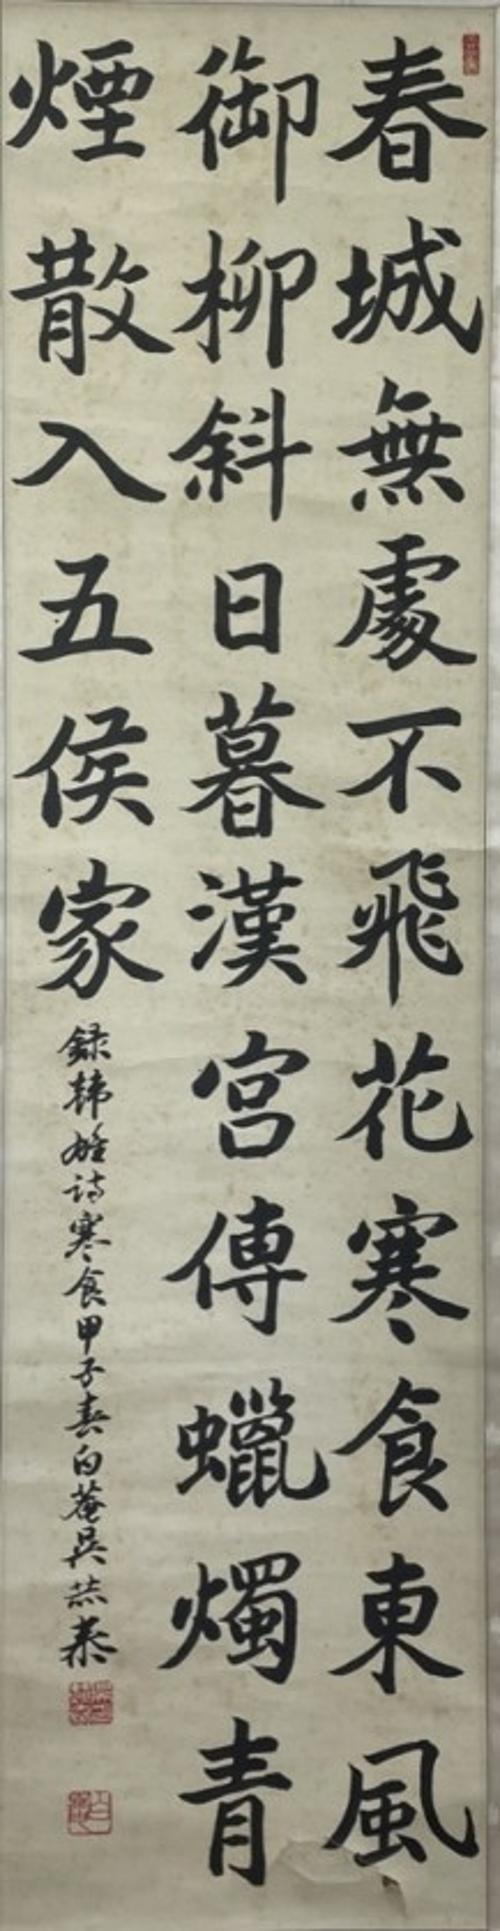 春城無處不飛花寒食東風
御柳斜日暮漢宮傳蠟燭青
煙散入五侯家
録韓詩寒食甲子春白菴吴恭泰